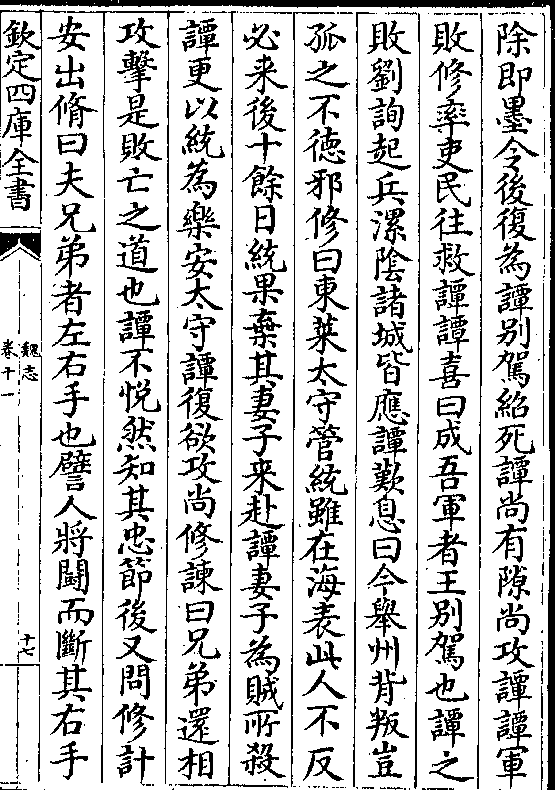 除即墨令後復為譚别駕紹死譚尚有隙尚攻譚譚軍
敗修率吏民往救譚譚喜曰成吾軍者王别駕也譚之
敗劉詢起兵漯陰諸城皆應譚歎息曰今舉州背叛豈
孤之不德邪修曰東萊太守管統雖在海表此人不反
必来後十餘日統果棄其妻子来赴譚妻子為賊所殺
譚更以統為樂安太守譚復欲攻尚修諫曰兄弟還相
攻擊是敗亡之道也譚不悦然知其忠節後又問修計
安出脩曰夫兄弟者左右手也譬人將鬬而斷其右手
欽定四庫全書
魏志
卷十一
十七